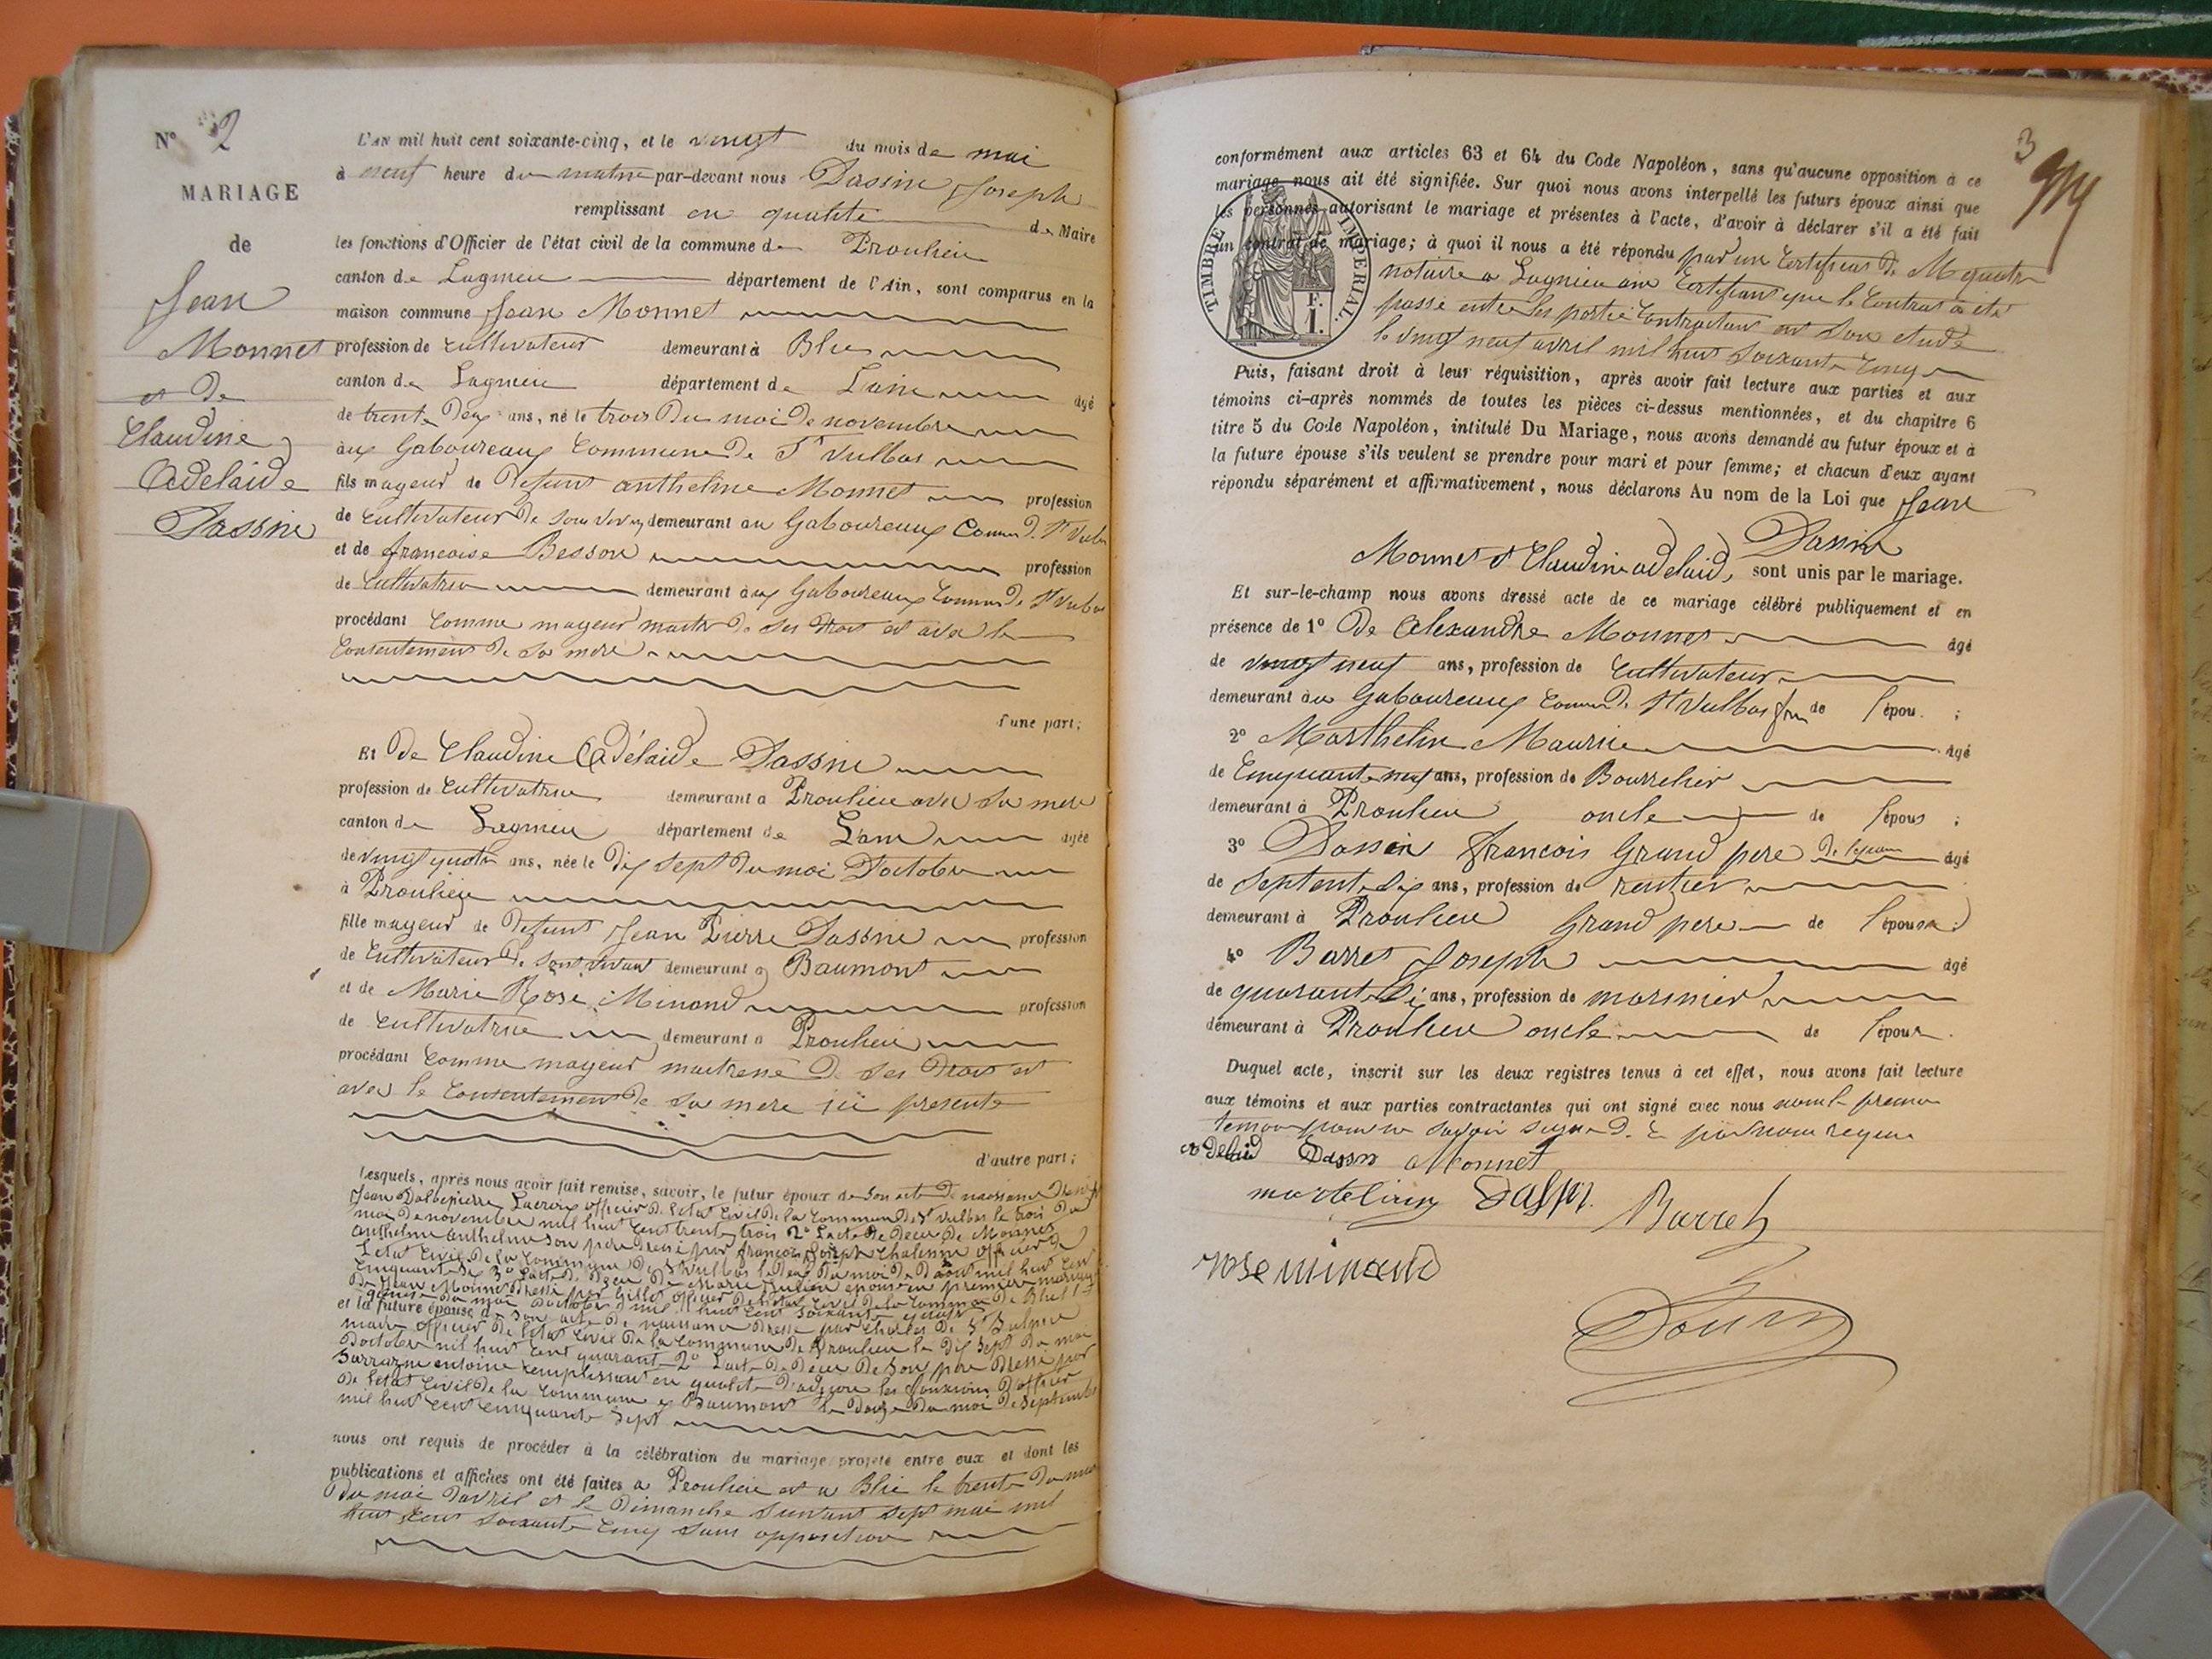 N° 2
MARIAGE
de
Jean
Monnet
et de
Claudine
Adelaide
Dassin
L'AN mil huit cent soixante-cinq, et le vingt du mois de mai
à neuf heure du matin par-devant nous Dassin Joseph
remplissant en qualité de Maire
les fonctions d'Officier de l'état civil de la commune de Proulieu
canton de Lagnieu département de l'Ain, sont comparus en la
maison commune Jean Monnet
profession de cultivateur demeurant à Blie
canton de Lagnieu département de Lain agé
de trente deux ans, né le trois du moi de novembre
aux Gaboureaux Commune de St Vulbas
fils mayeur de defunt anthelme Monnet profession
de cultivateur de son vivan demeurant au Gaboureaux Commu d. St Vulba
et de francoise Besson profession
de Cultivatrice demeurant aux Gaboureaux Commun de St Vulba
procédant Comme mayeur maitre de ses droit et avec le
Consentement de sa mere
d'une part;
Et de Claudine Adélaide Dassin
profession de Cultivatrice demeurant a Proulieu avec sa mere
canton de Lagnieu département de Lain agée
de vingt quatre ans, née le dix sept du moi Doctobre
à Proulieu
fille mayeur de defunt Jean Pierre Dassin profession
de Cultivateur de son vivant demeurant a Baumont
et de Marie Rose Minand profession
de cultivatrice demeurant a Proulieu
procédant Comme mayeur maitresse de ses droit et
avec le Consentement de sa mere ici presente
d'autre part;
Lesquels, après nous avoir fait remise, savoir, le futur époux de son acte de naissance
Jean Dalbepierre Lacroix officier de létat Civil de la Commune de St Vulbas le trois du
moi de novembre mil huit Cent trente trois 2° Lacte de deces de Monnet
anthelme son pere dressé par françois Joseph officier de
Létat Civil de la Commune de St Vulbas le du moi de mil huit Cent
Cinquante 3° Lacte de deces de Marie épouse en premier mariage
de Jean Monnet dressé par officier de létat Civil de la Commune de Blie
du moi doctobre mil huit Cent soixante
et la future épouse de son acte de naissance dressé par Charles de St
maire officier de létat Civil de la Commune de Proulieu le dix sept du moi
Doctobre mil huit Cent quarante 2° Lacte de deces de son pere dressé par
Sarrazin antoine remplissant en qualité les fonctions d'officier
de létat Civil de la Commune Baumont le douze du moi de Septembre
mil huit Cent Cinquante Sept
nous ont requis de procéder à la célébration du mariage projeté entre eux et dont les
publications et affiches ont été faites a Proulieu et a Blie le trente
du moi davril et le Dimanche suivant sept mai mil
huit Cent soixante Cinq sans opposition
3
conformément aux articles 63 et 64 du Code Napoléon, sans qu'aucune opposition à ce
mariage nous ait été signifiée. Sur quoi nous avons interpellé les futurs époux ainsi que
les personnes autorisant le mariage et présentes à l'acte, d'avoir à déclarer s'il a été fait
un contrat de mariage; à quoi il nous a été répondu par un Certificat de M
notaire a Lagnieu Certifiant que le Contrat à été
passé entre les partie Contractant en son etude
le vingt neuf avril mil huit soixante Cinq
TIMBRE IMPERIAL.
F.
1.
Puis, faisant droit à leur réquisition, après avoir fait lecture aux parties et aux
témoins ci-après nommés de toutes les pièces ci-dessus mentionnées, et du chapitre 6
titre 5 du Code Napoléon, intitulé Du Mariage, nous avons demandé au futur époux et à
la future épouse s'ils veulent se prendre pour mari et pour femme; et chacun d'eux ayant
répondu séparément et affirmativement, nous déclarons Au nom de la Loi que Jean
Dassin
Monnet et Claudine adelaid, sont unis par le mariage.
Et sur-le-champ nous avons dressé acte de ce mariage célébré publiquement et en
présence de 1° De Alexandre Monnet âgé
de vingt neuf ans, profession de Cultivateur
demeurant au Gaboureaux Commu d. St Vulbas de l'épou. ;
2° Marthelin Maurice âgé
de Cinquante neuf ans, profession de Bourrelier
demeurant à Proulieu oncle de l'épous ;
3° Dassin francois Grand pere de lepouse âgé
de septente six ans, profession de rentier
demeurant à Proulieu Grand pere de l'épouse ;
4° Barret Joseph âgé
de quarante six ans, profession de marinier
demeurant à Proulieu oncle de l'épous.
Duquel acte, inscrit sur les deux registres tenus à cet effet, nous avons fait lecture
aux témoins et aux parties contractantes qui ont signé avec nous non le premier
temoin pour ne savoir signé
adelaid Dassin Monnet
martelin Barret
rose minand